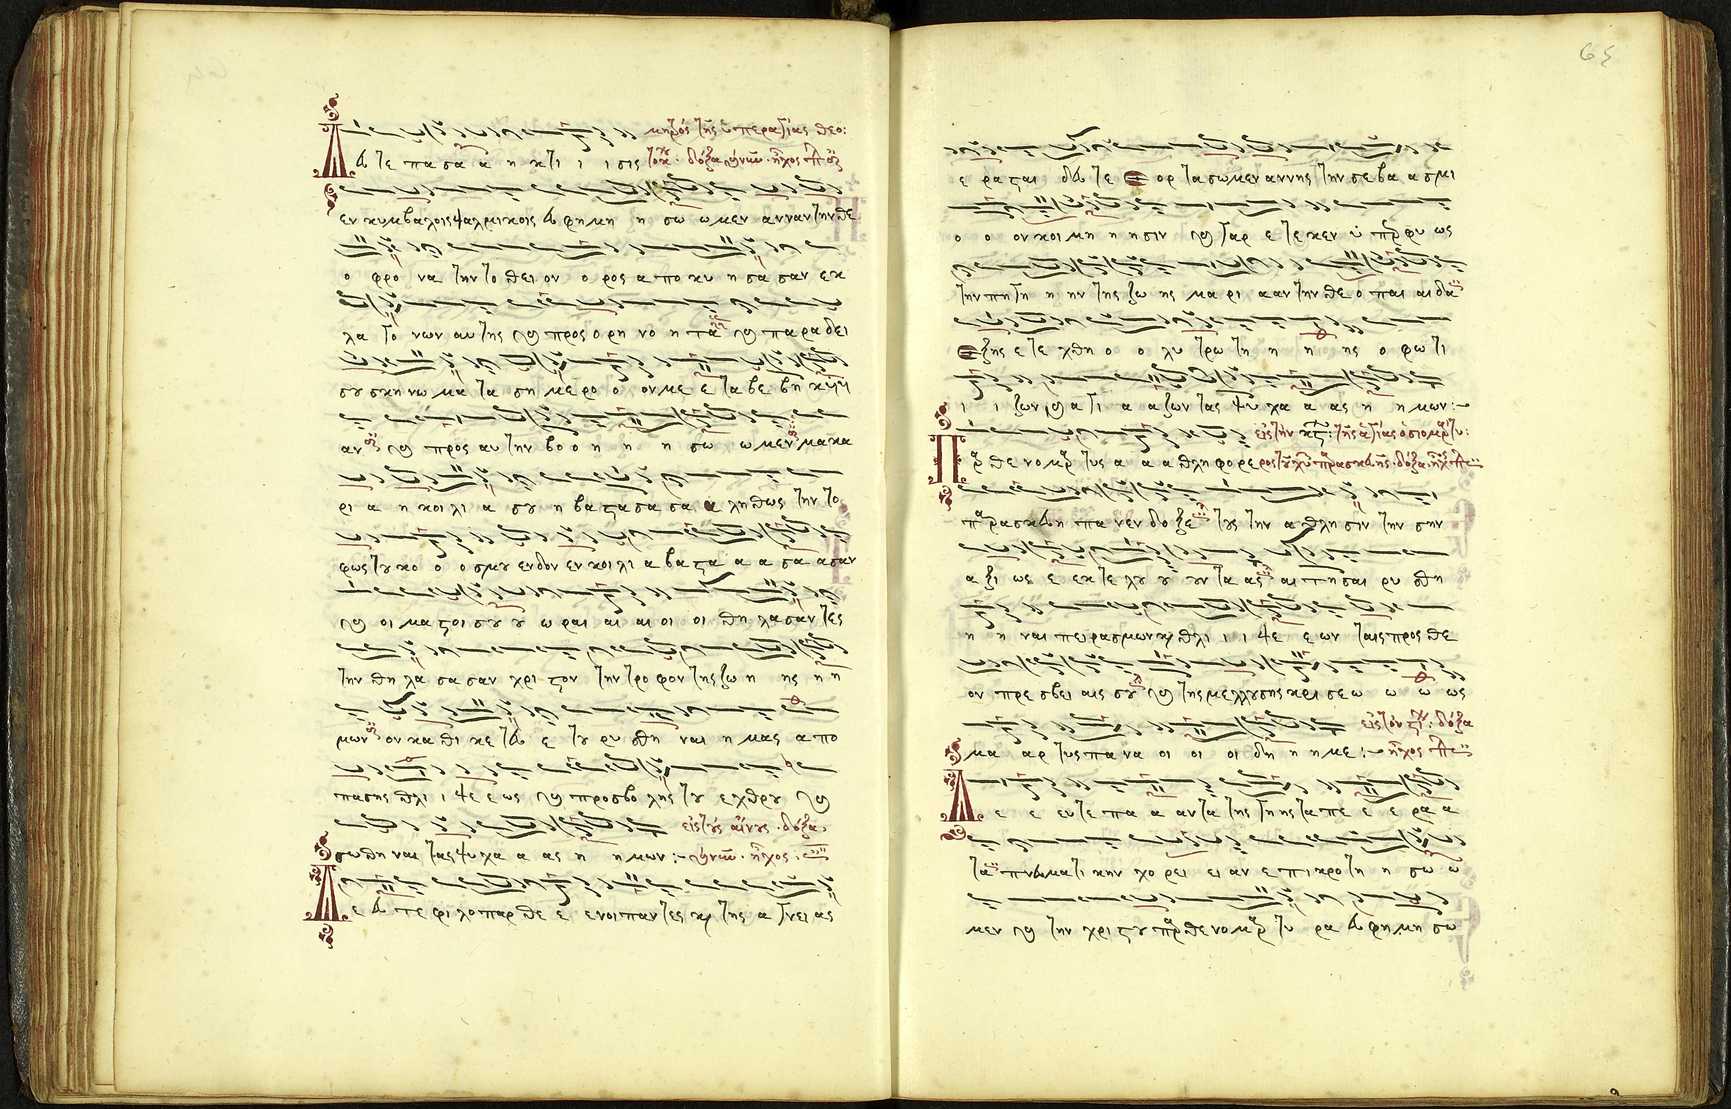 μητρὸς τῆς ὑπεραγίας θεο:
Δ ευ τε πα σα α η κτι ι ι σις τοκ. δόξα καὶ νῦν. ἦχος
εν κυμβαλοις ψαλμικοις ευ φημη η σω ω μεν ανναν την θε
ο φρο να την το θει ον ο ρος α πο κυ η σα σαν εκ
λα γο νων αυ της και προς ο ρη νο η τα και πα ρα δει
σου σκη νω μα τα ση με ρο ο ον με ε τα βε βη κυι
αν και προς αυ την βο ο η η η σω ω μεν μα κα
ρι α η κοι λι α σου η βα στα σα σα α λη θως την το
φως του κο ο ο σμου εν δον εν κοι λι α βα στα α α σα α σαν
και οι μα στοι σου ου ω ραι αι αι οι οι θη λα σαν τες
την θη λα σα σαν χρι στον την τρο φον της ζω η ης η η
μων ον κα θι κε τευ ε του ρυ σθη ναι η μας α πο
πασης θλι ι ψε ε ως και προσβο λης του ε χθρου και
εἰς τοὺς αἴνους. δόξα,
σωθη ναι τας ψυ χα α ας η η μων:~ καὶ νῦν. ἦχος.
Δ ε ευ τε φι λο παρ θε ε ε νοι παν τες και της α γνει ας
65
ε ρα σται δευ τε ε ορ τα σω μεν αννης την σε βα α σμι
ο ο ον κοι μη η η σιν και γαρ ε τε κεν υ περ φυ ως
την πη γη η ην της ζω ης μα ρι α αν την θε ο παι αι δα
ε ξης ε τε χθη ο ο λυ τρω τη η η ης ο φω τι
ι ι ζων και α γι α α ζων τας ψυ χα α ας η η μων:~
εἰς τὴν κς: τῆς ἁγίας ὁσιομάρτυ:
Π αρ θε νο μαρ τυς α α α θλη φο ρε ρος τοῦ χυ παρασκευῆς. δόξα. ἦχος
παρασκευη πα νεν δο ξε τους την α θλη σιν την σην
α ξι ως ε εκ τε λου ου ουν τα ας αι τη σαι ρυ σθη
η η ναι πειρασμων και θλι ι ι ψε ε ων ταις προς θε
ον πρε σβει αις σου και της μελλουσης κρι σε ω ω ω ως
εἰς τὸν στίχ: δόξα
μα αρ τυς πα να οι οι οι δη η η με:~ ἦχος
Δ ε ε ευ τε πα α αν τα της γης τα πε ε ε ρα α
τα πνευμα τι κην χο ρει ει αν ε πι κρο τη η σω ω
μεν και την χρι στου παρ θε νο μαρ τυ ρα ευ φη μη σω